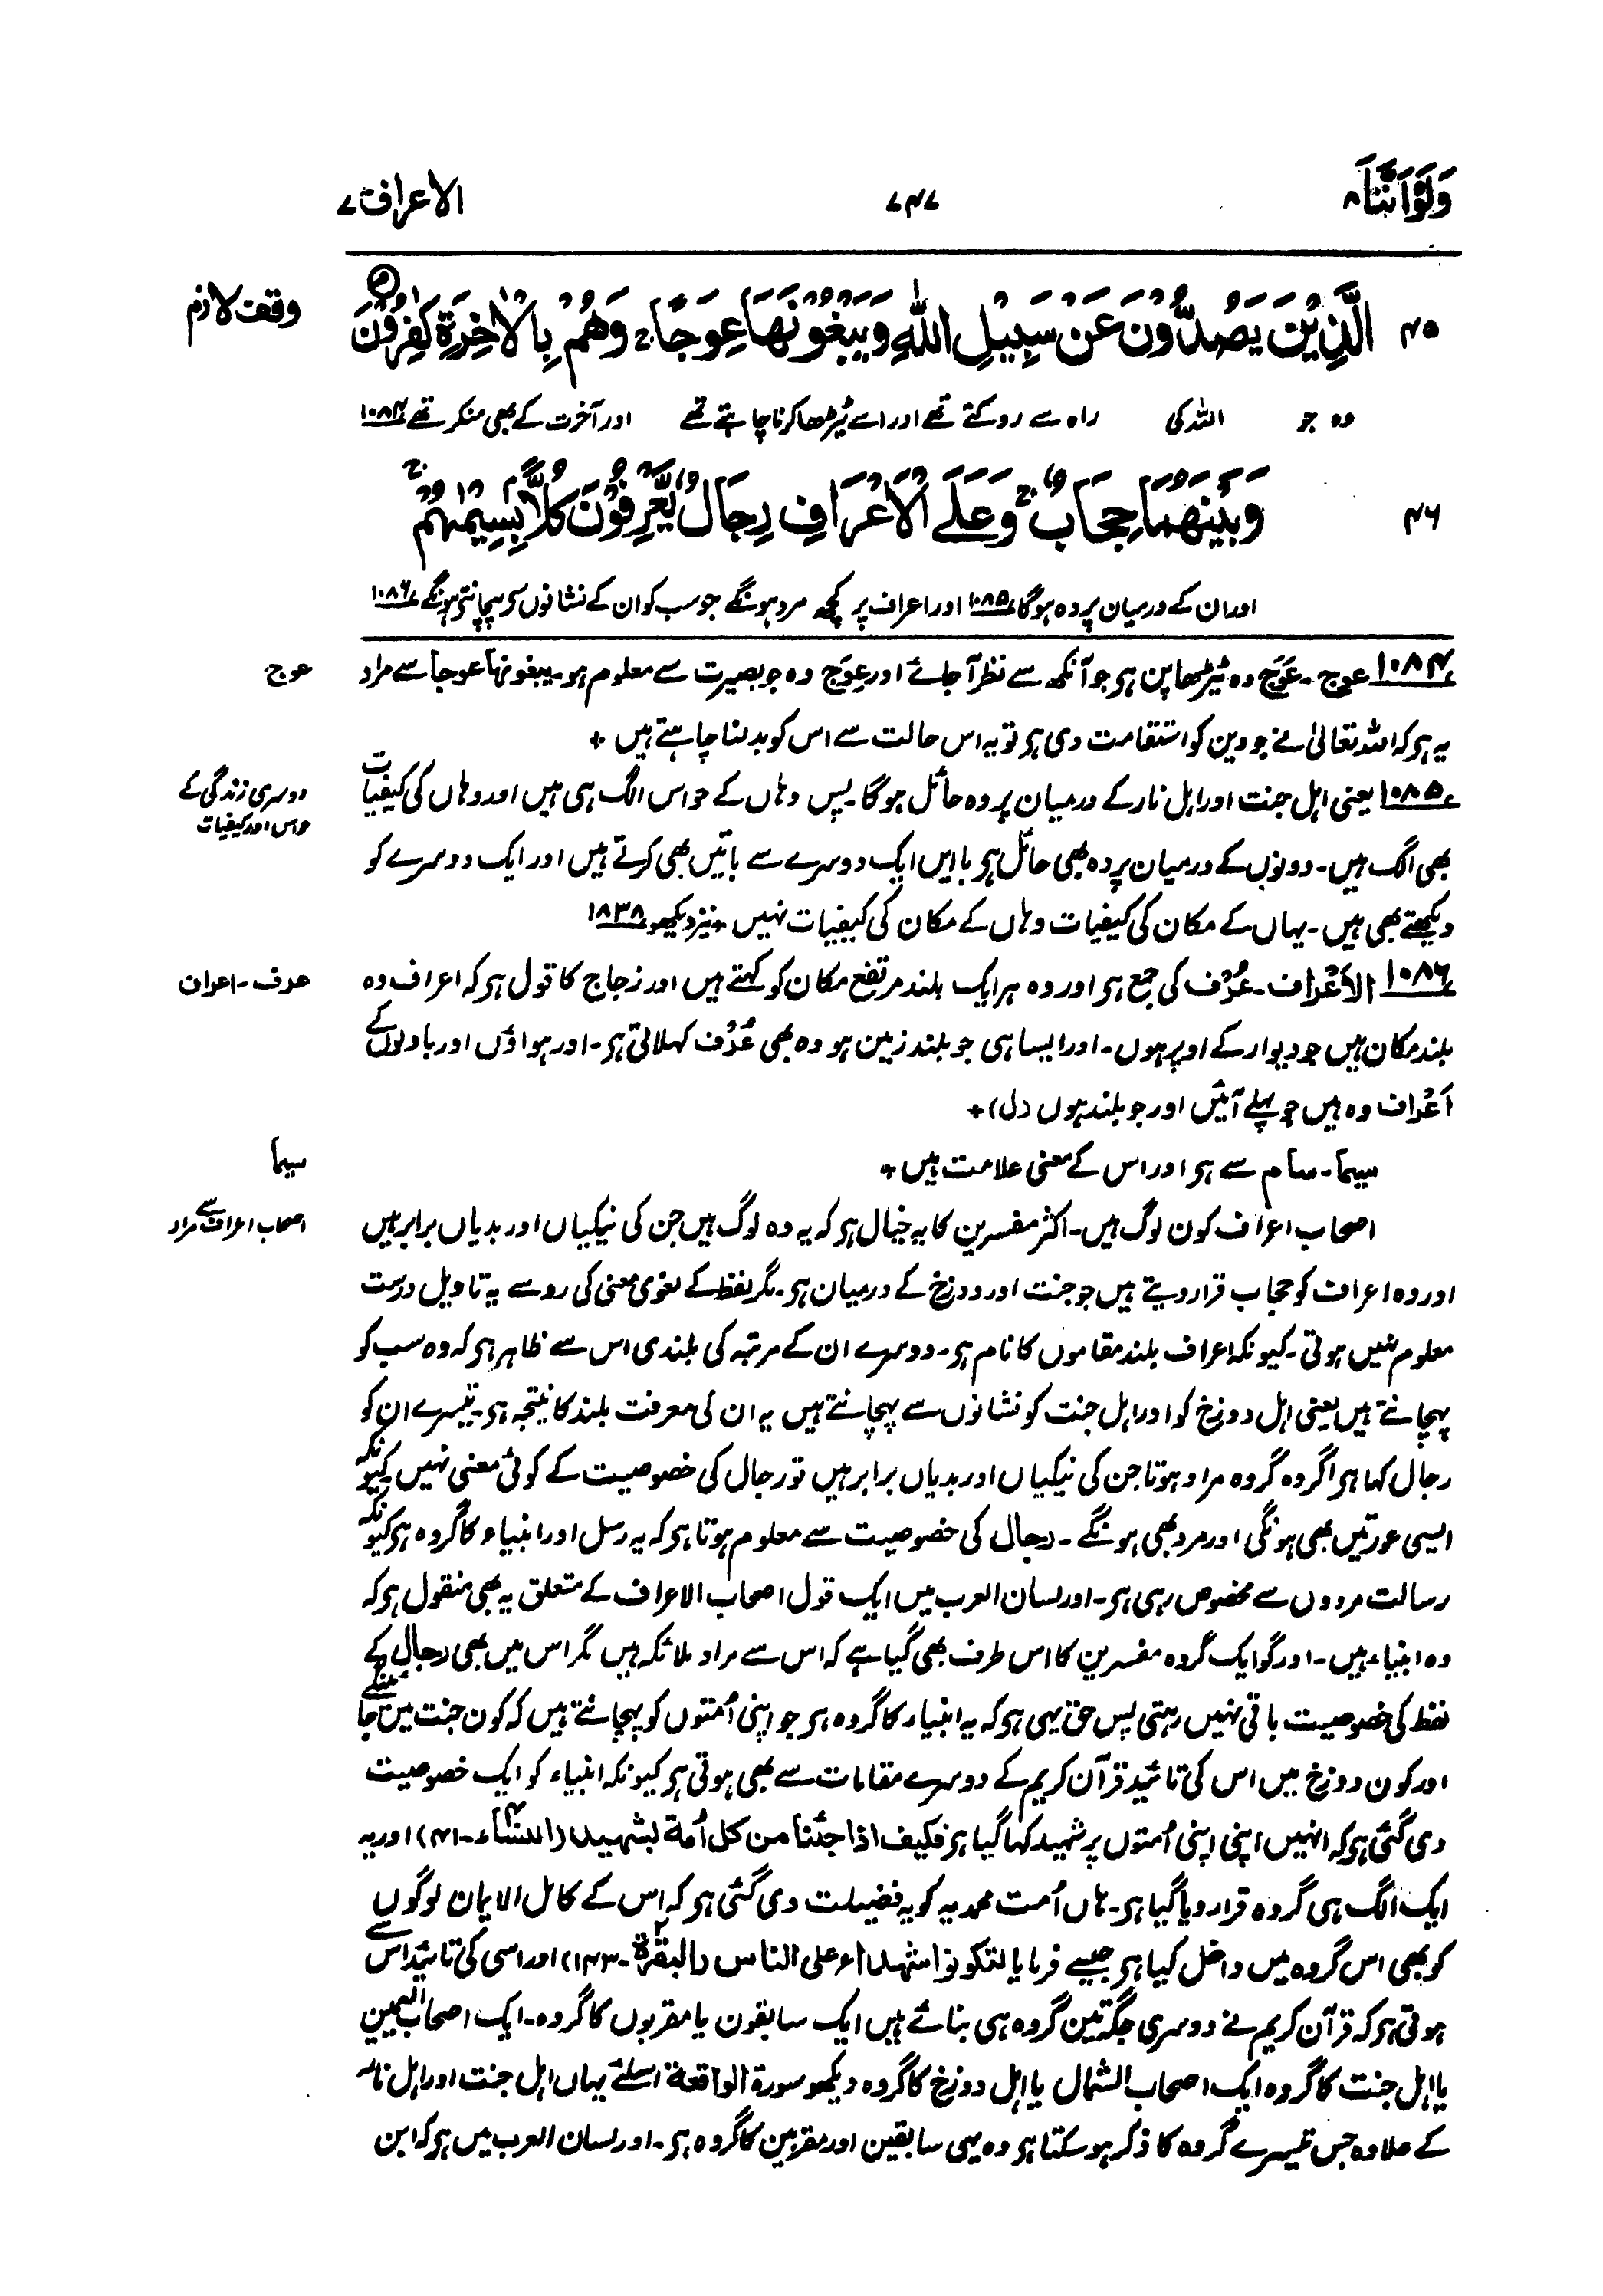 وَلَوْاَنَّنَا ۸
۷۴۷
الاعراف ۷
۴۵ الَّذِيْنَ يَصُدُّوْنَ عَنْ سَبِيْلِ اللّٰهِ وَيَبْغُوْنَهَا عِوَجًا ۚ وَهُمْ بِالْاٰخِرَةِ كٰفِرُوْنَ
وقف لازم
وہ جو اللہ کی راہ سے روکتے تھے اور اسے ٹیڑھا کرنا چاہتے تھے اور آخرت کے بھی منکر تھے ۱۰۸۴
۴۶ وَبَيْنَهُمَا حِجَابٌ ۚ وَعَلَى الْاَعْرَافِ رِجَالٌ يَّعْرِفُوْنَ كُلًّۢا بِسِيْمٰىهُمْ ۚ
اور ان کے درمیان پردہ ہوگا ۱۰۸۵ اور اعراف پر کچھ مرد ہونگے جو سب کو ان کے نشانوں سے پہچانتے ہونگے ۱۰۸۶
۱۰۸۴ عوج ۔ عَوَج وہ ٹیڑھا پن ہر جو آنکھ سے نظر آجائے اور عِوَج وہ جو بصیرت سے معلوم ہو ۔ یبغونہا عوجا سے مراد
عوج
یہ ہر کہ اللہ تعالیٰ نے جو دین کو استقامت دی ہر تو یہ اس حالت سے اس کو بدلنا چاہتے ہیں +
۱۰۸۵ یعنی اہل جنت اور اہل نار کے درمیان پردہ حائل ہوگا ۔ پس وہاں کے حواس الگ ہی ہیں اور وہاں کی کیفیات
دوسری زندگی کے
حواس اور کیفیات
بھی الگ ہیں ۔ دونوں کے درمیان پردہ بھی حائل ہر باایں ایک دوسرے سے باتیں بھی کرتے ہیں اور ایک دوسرے کو
دیکھتے بھی ہیں ۔ یہاں کے مکان کی کیفیات وہاں کے مکان کی کیفیات نہیں + نیز دیکھو ۱۸۳۸
۱۰۸۶ الاَعْراف ۔ عُرْف کی جمع ہر اور وہ ہر ایک بلند مرتفع مکان کو کہتے ہیں اور زجاج کا قول ہر کہ اعراف وہ
عرف ۔ اعراف
بلند مکان ہیں جو دیوار کے اوپر ہوں ۔ اور ایسا ہی جو بلند زمین ہو وہ بھی عُرْف کہلاتی ہر ۔ اور ہواؤں اور بادلوں کے
اَعْراف وہ ہیں جو پہلے آئیں اور جو بلند ہوں (ل) +
سیما ۔ سام سے ہر اور اس کے معنی علامت ہیں +
سیما
اصحاب اعراف کون لوگ ہیں ۔ اکثر مفسرین کا یہ خیال ہر کہ یہ وہ لوگ ہیں جن کی نیکیاں اور بدیاں برابر ہیں
اصحاب اعراف سے مراد
اور وہ اعراف کو حجاب قرار دیتے ہیں جو جنت اور دوزخ کے درمیان ہر ۔ مگر لفظ کے لغوی معنی کی رو سے یہ تاویل درست
معلوم نہیں ہوتی ۔ کیونکہ اعراف بلند مقاموں کا نام ہر ۔ دوسرے ان کے مرتبہ کی بلندی اس سے ظاہر ہر کہ وہ سب کو
پہچانتے ہیں یعنی اہل دوزخ کو اور اہل جنت کو نشانوں سے پہچانتے ہیں یہ ان کی معرفت بلند کا نتیجہ ہر ۔ تیسرے ان کو
رجال کہا ہر اگر وہ گروہ مراد ہوتا جن کی نیکیاں اور بدیاں برابر ہیں تو رجال کی خصوصیت کے کوئی معنی نہیں کیونکہ
ایسی عورتیں بھی ہونگی اور مرد بھی ہونگے ۔ رجال کی خصوصیت سے معلوم ہوتا ہر کہ یہ رسل اور انبیاء کا گروہ ہر کیونکہ
رسالت مردوں سے مخصوص رہی ہر ۔ اور لسان العرب میں ایک قول اصحاب الاعراف کے متعلق یہ بھی منقول ہر کہ
وہ انبیاء ہیں ۔ اور گو ایک گروہ مفسرین کا اس طرف بھی گیا ہے کہ اس سے مراد ملائکہ ہیں مگر اس میں بھی رجال کے
لفظ کی خصوصیت باقی نہیں رہتی پس حق یہی ہر کہ یہ انبیاء کا گروہ ہر جو اپنی اُمتوں کو پہچانتے ہیں کہ کون جنت میں جائینگے
اور کون دوزخ میں اس کی تائید قرآن کریم کے دوسرے مقامات سے بھی ہوتی ہر کیونکہ انبیاء کو ایک خصوصیت
دی گئی ہر کہ انہیں اپنی اپنی اُمتوں پر شہید کہا گیا ہر فکیف اذا جئنا من کل اُمة بشھید (النساء ۴ ۔ ۴۱) اور یہ
ایک الگ ہی گروہ قرار دیا گیا ہر ۔ ہاں اُمت محمدیہ کو یہ فضیلت دی گئی ہر کہ اس کے کامل الایمان لوگوں
کو بھی اس گروہ میں داخل کیا ہر جیسے فرمایا لتکونوا شھداء علی الناس (البقرة ۲ ۔ ۱۴۳) اور اسی کی تائید اس سے
ہوتی ہر کہ قرآن کریم نے دوسری جگہ تین گروہ ہی بنائے ہیں ایک سابقون یا مقربوں کا گروہ ۔ ایک اصحاب الیمین
یا اہل جنت کا گروہ ایک اصحاب الشمال یا اہل دوزخ کا گروہ دیکھو سورة الواقعة اسلئے یہاں اہل جنت اور اہل نار
کے علاوہ جس تیسرے گروہ کا ذکر ہو سکتا ہر وہ یہی سابقین اور مقربین کا گروہ ہر ۔ اور لسان العرب میں ہر کہ ابن